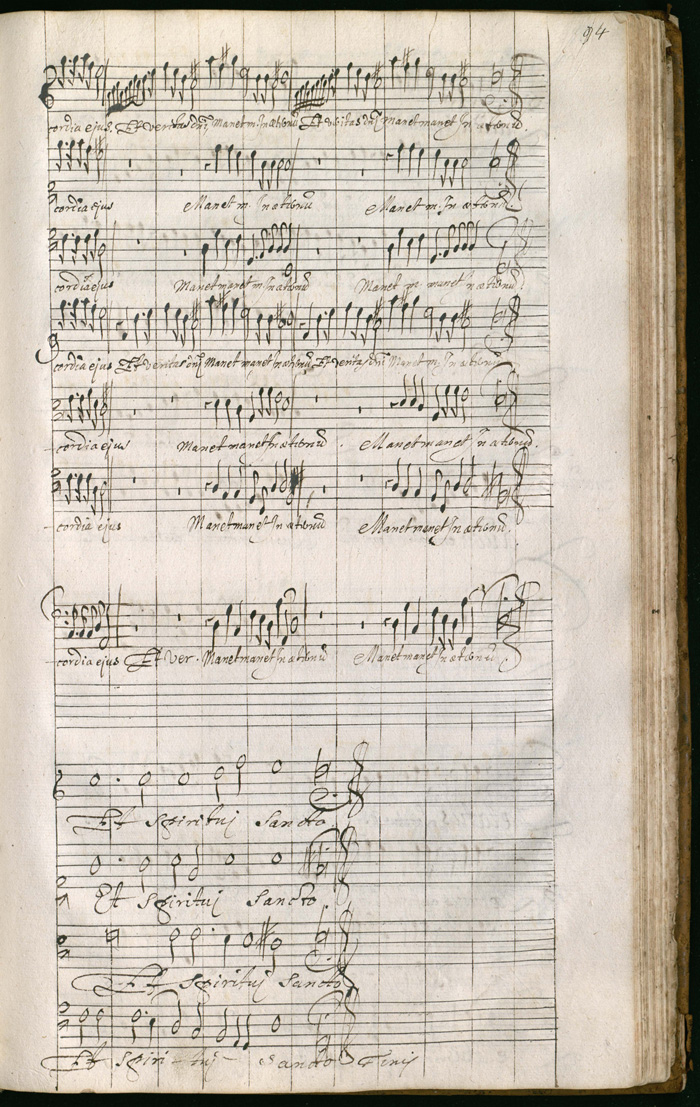 94
cordia ejus. Et veritas dnj Manet m. In æternū Et veritas dnj Manet manet In æternū.
cordia ejus Manet m. In æternū Manet m. In æternū.
cordia ejus Manet manet In æternū Manet m manet In æternū.
cordia ejus Et veritas dnj Manet manet In æternū, Et veritas dnj Manet m. In æternū
cordia ejus Manet manet In æternū. Manet manet In æternū.
cordia ejus Manet manet In æternū Manet manet In æternū.
cordia ejus Et ver. Manet manet In æternū Manet manet In æternū.
Et Spirituj Sancto
Et Spirituj Sancto.
Et Spirituj Sancto
Et Spiri-tuj- Sancto Finis